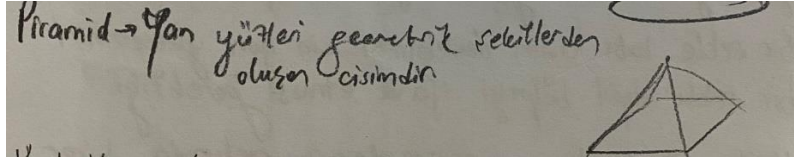 Piramid → Yan yüzleri geometrik şekillerden
oluşan cisimdir